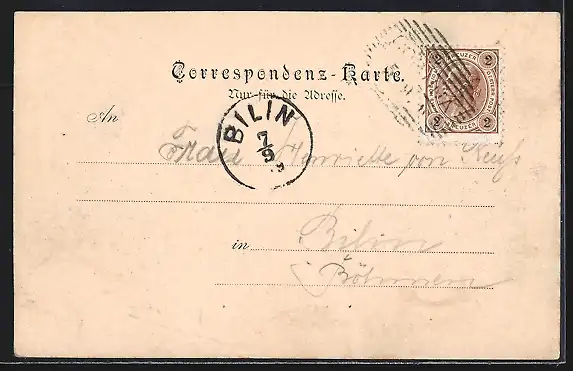 Correspondenz-Karte.
Nur für die Adresse.
An
Frau Henriette von Reuß
in Bilin
Böhmen
BILIN
7/9
2 KREUZER 2
2 KREUZER 2